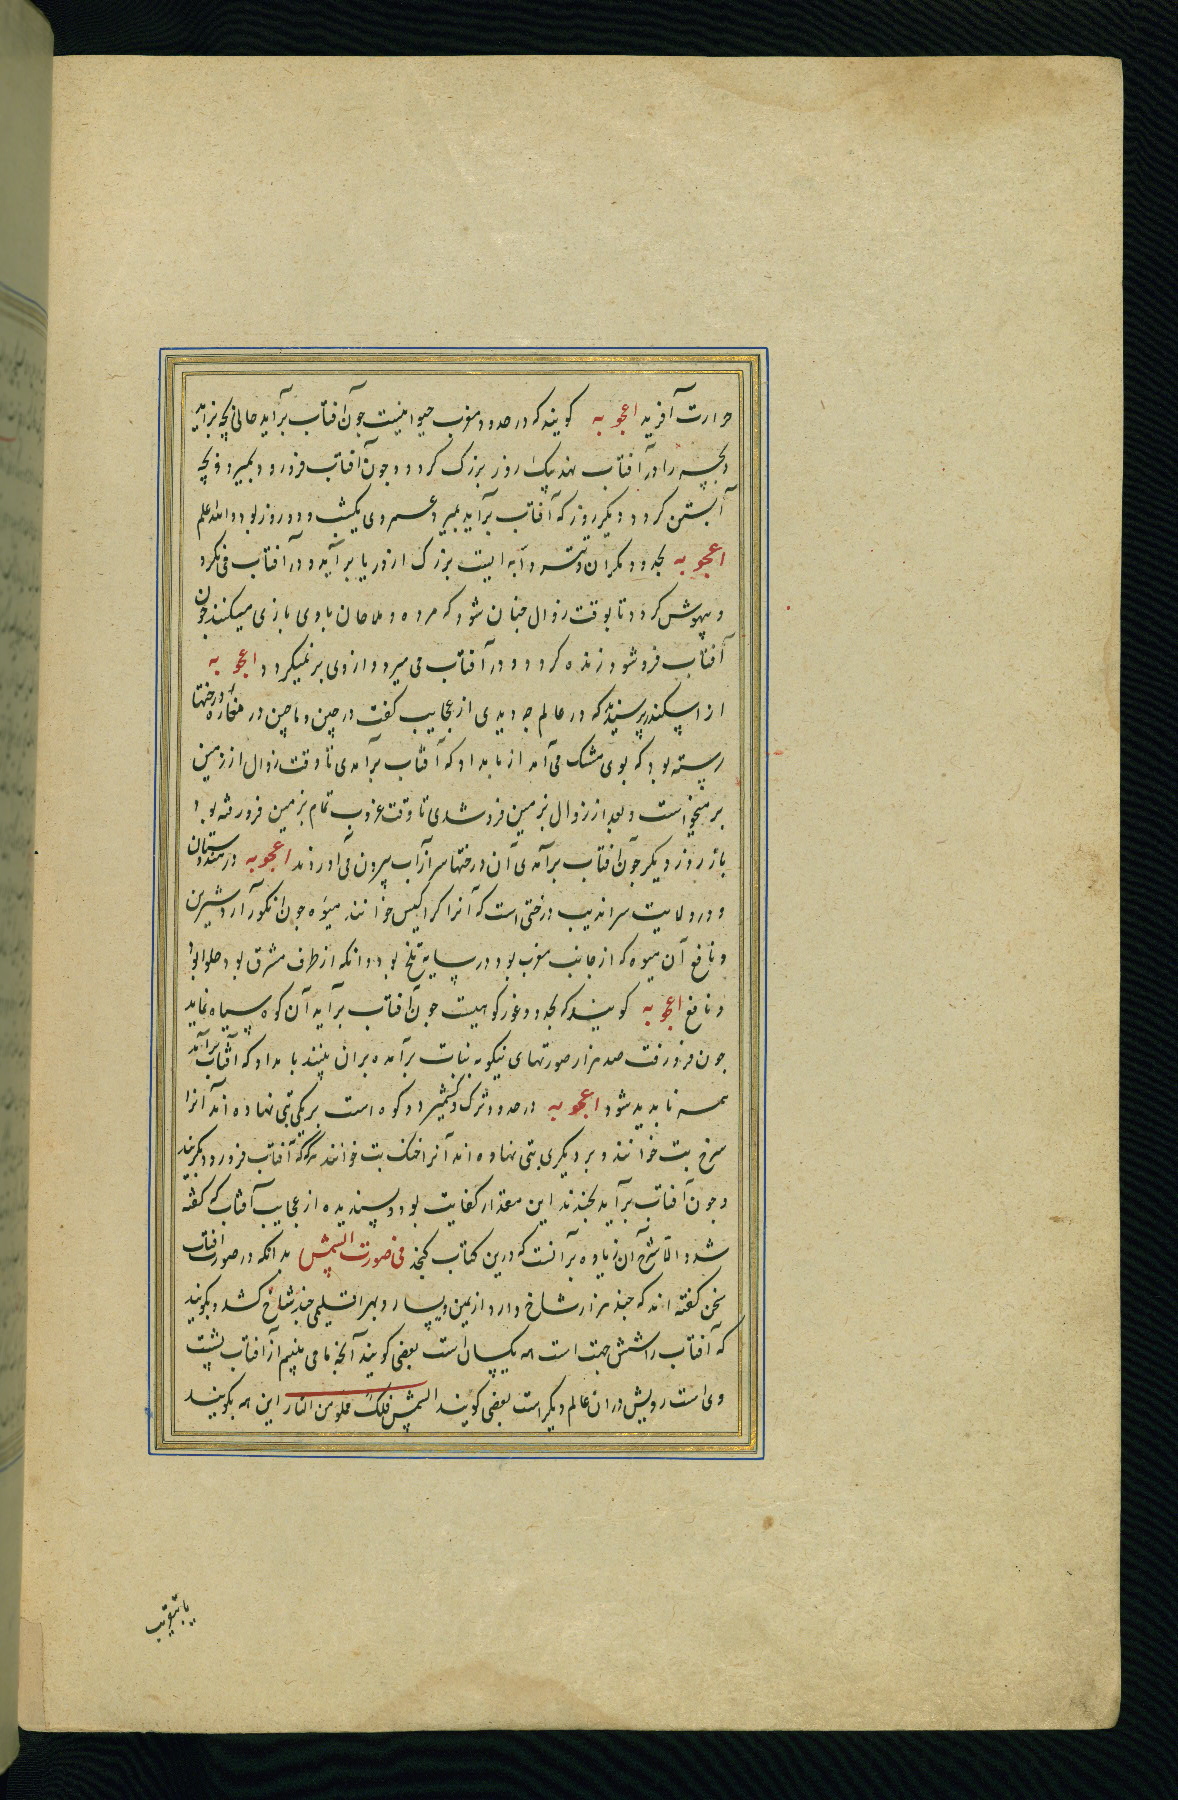 حرارت آفرید اعجوبه کویند که در حدود مغرب حیوانیست جون آفتاب برآید حالی بچه بزاید
و بچه را در آفتاب نهد بیک روز بزرک کردد و جون آفتاب فرو رود بمیرد و بچه
آبستن کردد دیکر روز که آفتاب برآید بمیرد عمر وی یکشب و دو روز بود والله اعلم
اعجوبه بحدود مکران دابه ایست بزرک از دریا برآید و در آفتاب می نکرد
و بیهوش کردد تا بوقت زوال جنان شود که مرده و ملاحان با وی بازی میکنند جون
آفتاب فرو شود زنده کردد و در آفتاب می میرد و از وی بر نمیکردد اعجوبه
از اسکندر پرسیدند که در عالم جه دیدی از عجایب کفت در جین و ماجین در مغاره درختها
رسته بود که بوی مشک می آمد از بامداد که آفتاب برآمدی تا وقت زوال از زمین
بر میخواست و بعد از زوال بزمین فرو شدی تا وقت غروب تمام بزمین فرو رفته بود
باز روز دیکر جون آفتاب برآمدی آن درختها سر از آب بیرون می آوردند اعجوبه در هندوستان
و در ولایت سراندیب درختی است که آنرا خوانند میوه جون انکور آرد شیرین
و نافع آن میوه که از جانب مغرب بود در سایه تلخ بود و آنکه از طرف مشرق بود حلوا بود
و نافع اعجوبه کویند که بحدود غور کوهیست جون آفتاب برآید آن کوه سیاه نماید
جون فرو رفت صد هزار صورتهای نیکو نبات برآمده بران بینند بامداد که آفتاب برآید
همه نابدید شود اعجوبه در حدود ترک و کشمیر دو کوه است بر یکی بتی نهاده اند آنرا
سرخ بت خوانند و بر دیکری بتی نهاده اند آنرا خنک بت خوانند هرکه که آفتاب فرو رود بکریند
و جون آفتاب برآید بخندند این مقدار کفایت بود و پسندیده از عجایب آفتاب که کفته
شد و الا شرح آن زیاده برآنست که درین کتاب کنجد فی صورت الشمس بدانکه در صورت آفتاب
سخن کفته اند که جند هزار شاخ دارد از یمین و یسار و بهر اقلیمی جند شاخ کشد و بکویند
که آفتاب را شش جهت است همه یکسان است بعضی کویند آنجه ما می بینیم از آفتاب پشت
وی است رویش دران عالم دیکر است بعضی کویند الشمس فلک مملو من النار این همه بکویند